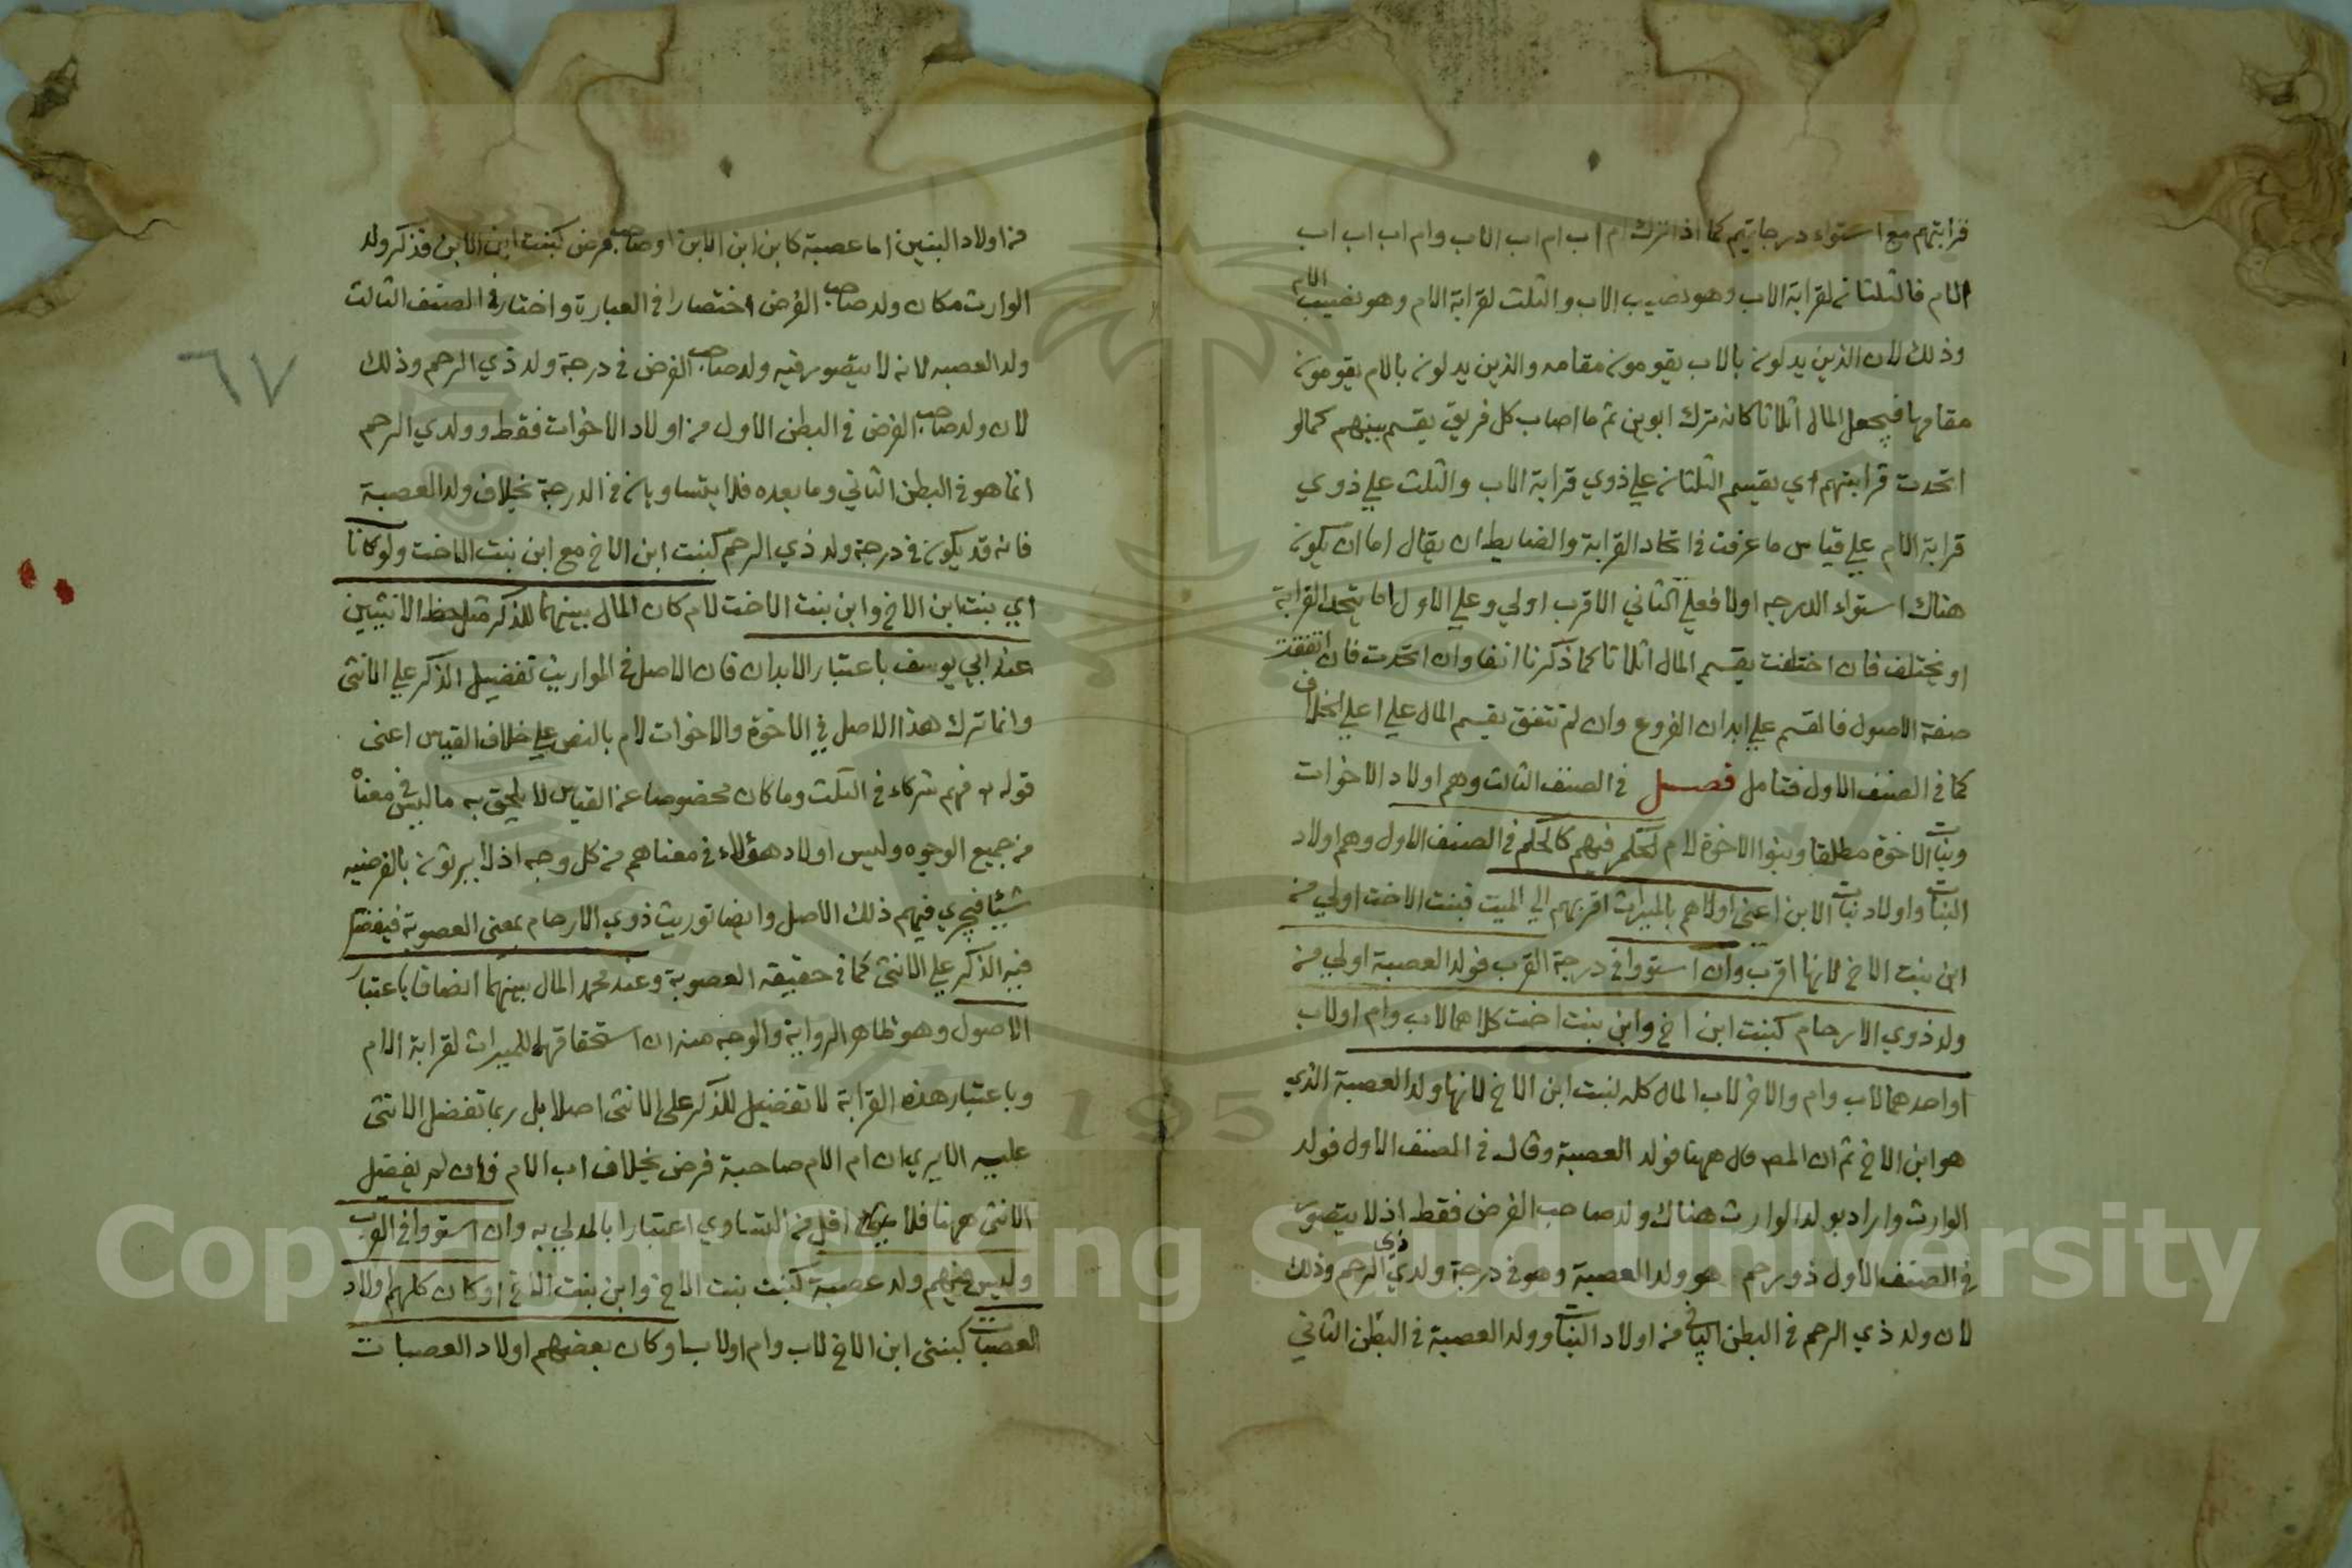 قرابتهم مع استواء درجاتهم كما اذا ترك ام اب ام اب الاب وام اب اب اب
الام فالثلثان لقرابة الاب وهو نصيب الاب والثلث لقرابة الام وهو نصيب الام
وذلك لان الذين يدلون بالاب يقومون مقامه والذين يدلون بالام يقومون
مقامها فيجعل المال اثلاثا كانه ترك ابوين ثم ما اصاب كل فريق يقسم بينهم كما لو
اتحدت قرابتهم اي يقسم الثلثان علي ذوي قرابة الاب والثلث علي ذوي
قرابة الام علي قياس ما عرفت في اتحاد القرابة والضابط ان يقال اما ان يكون
هناك استواء الدرجه اولا فعلي الثاني الاقرب اولي وعلي الاول اما يتحد القرابة
او يختلف فان اختلفت يقسم المال اثلاثا كما ذكرنا انفا وان اتحدت فان اتفقت
صفة الاصول فالقسم علي ابدان الفروع وان لم تتفق يقسم المال علي اعلي الخلاف
كما في الصنف الاول فتامل فصل في الصنف الثالث وهم اولاد الاخوات
وبنات الاخوة مطلقا وبنوا الاخوة لام لحكم فيهم كالحكم في الصنف الاول وهم اولاد
البنات واولاد بنات الابن اعني اولاهم بالميراث اقربهم الي الميت فبنت الاخت اولي من
ابن بنت الاخ لانها اقرب وان استووا في درجة القرب فولد العصبة اولي من
ولد ذوي الارحام كبنت ابن اخ وابن بنت اخت كلاهما لاب وام او لاب
او احدهما لاب وام والاخر لاب المال كله لبنت ابن الاخ لانها ولد العصبة الذي
هو ابن الاخ ثم ان المص قال ههنا فولد العصبة وقال في الصنف الاول فولد
الوارث واراد بولد الوارث هناك ولد صاحب الفرض فقط اذ لا يتصور
في الصنف الاول ذو رحم هو ولد العصبة وهو في درجة ولد ذي الرحم وذلك
لان ولد ذي الرحم في البطن الثاني من اولاد البنات وولد العصبة في البطن الثاني
من اولاد البنين اما عصبة كابن ابن الابن او صاحب فرض كبنت ابن الابن فذكر ولد
الوارث مكان ولد صاحب الفرض اختصارا في العبارة واختار في الصنف الثالث
ولد العصبه لانه لا يتصور فيه ولد صاحب الفرض في درجة ولد ذي الرحم وذلك
لان ولد صاحب الفرض في البطن الاول من اولاد الاخوات فقط وولد ذي الرحم
انما هو في البطن الثاني وما بعده فلا يتساويان في الدرجة بخلاف ولد العصبة
فانه قد يكون في درجة ولد ذي الرحم كبنت ابن الاخ مع ابن بنت الاخت ولو كانا
اي بنت ابن الاخ وابن بنت الاخت لام كان المال بينهما للذكر مثل حظ الانثيين
عند ابي يوسف باعتبار الابدان فان الاصل في المواريث تفضيل الذكر علي الانثى
وانما ترك هذا الاصل في الاخوة والاخوات لام بالنص علي خلاف القياس اعنى
قوله فهم شركاء في الثلث وما كان مخصوصا عن القياس لا يلحق به ما ليس في معناه
من جميع الوجوه وليس اولاد هؤلاء في معناهم من كل وجه اذ لا يرثون بالفرضيه
شيئا فيجري فيهم ذلك الاصل وايضا توريث ذوي الارحام بمعنى العصوبة فيفضل
فيه الذكر علي الانثى كما في حقيقه العصوبة وعند محمد المال بينهما انصافا باعتبار
الاصول وهو ظاهر الرواية والوجه منه ان استحقاقهما للميراث لقرابة الام
وباعتبار هذه القرابة لا تفضيل للذكر على الانثى اصلا بل ربما تفضل الانثى
عليه الا يري ان ام الام صاحبة فرض بخلاف اب الام فان لم يفضل
الانثى ههنا فلا اقل من التساوي اعتبارا بالمدلي به وان استووا في القرب
وليس فيهم ولد عصبة كبنت بنت الاخ وابن بنت الاخ او كان كلهم اولاد
العصبات كبنتى ابن الاخ لاب وام او لاب او كان بعضهم اولاد العصبات
٦٧
Copyright © King Saud University
1957